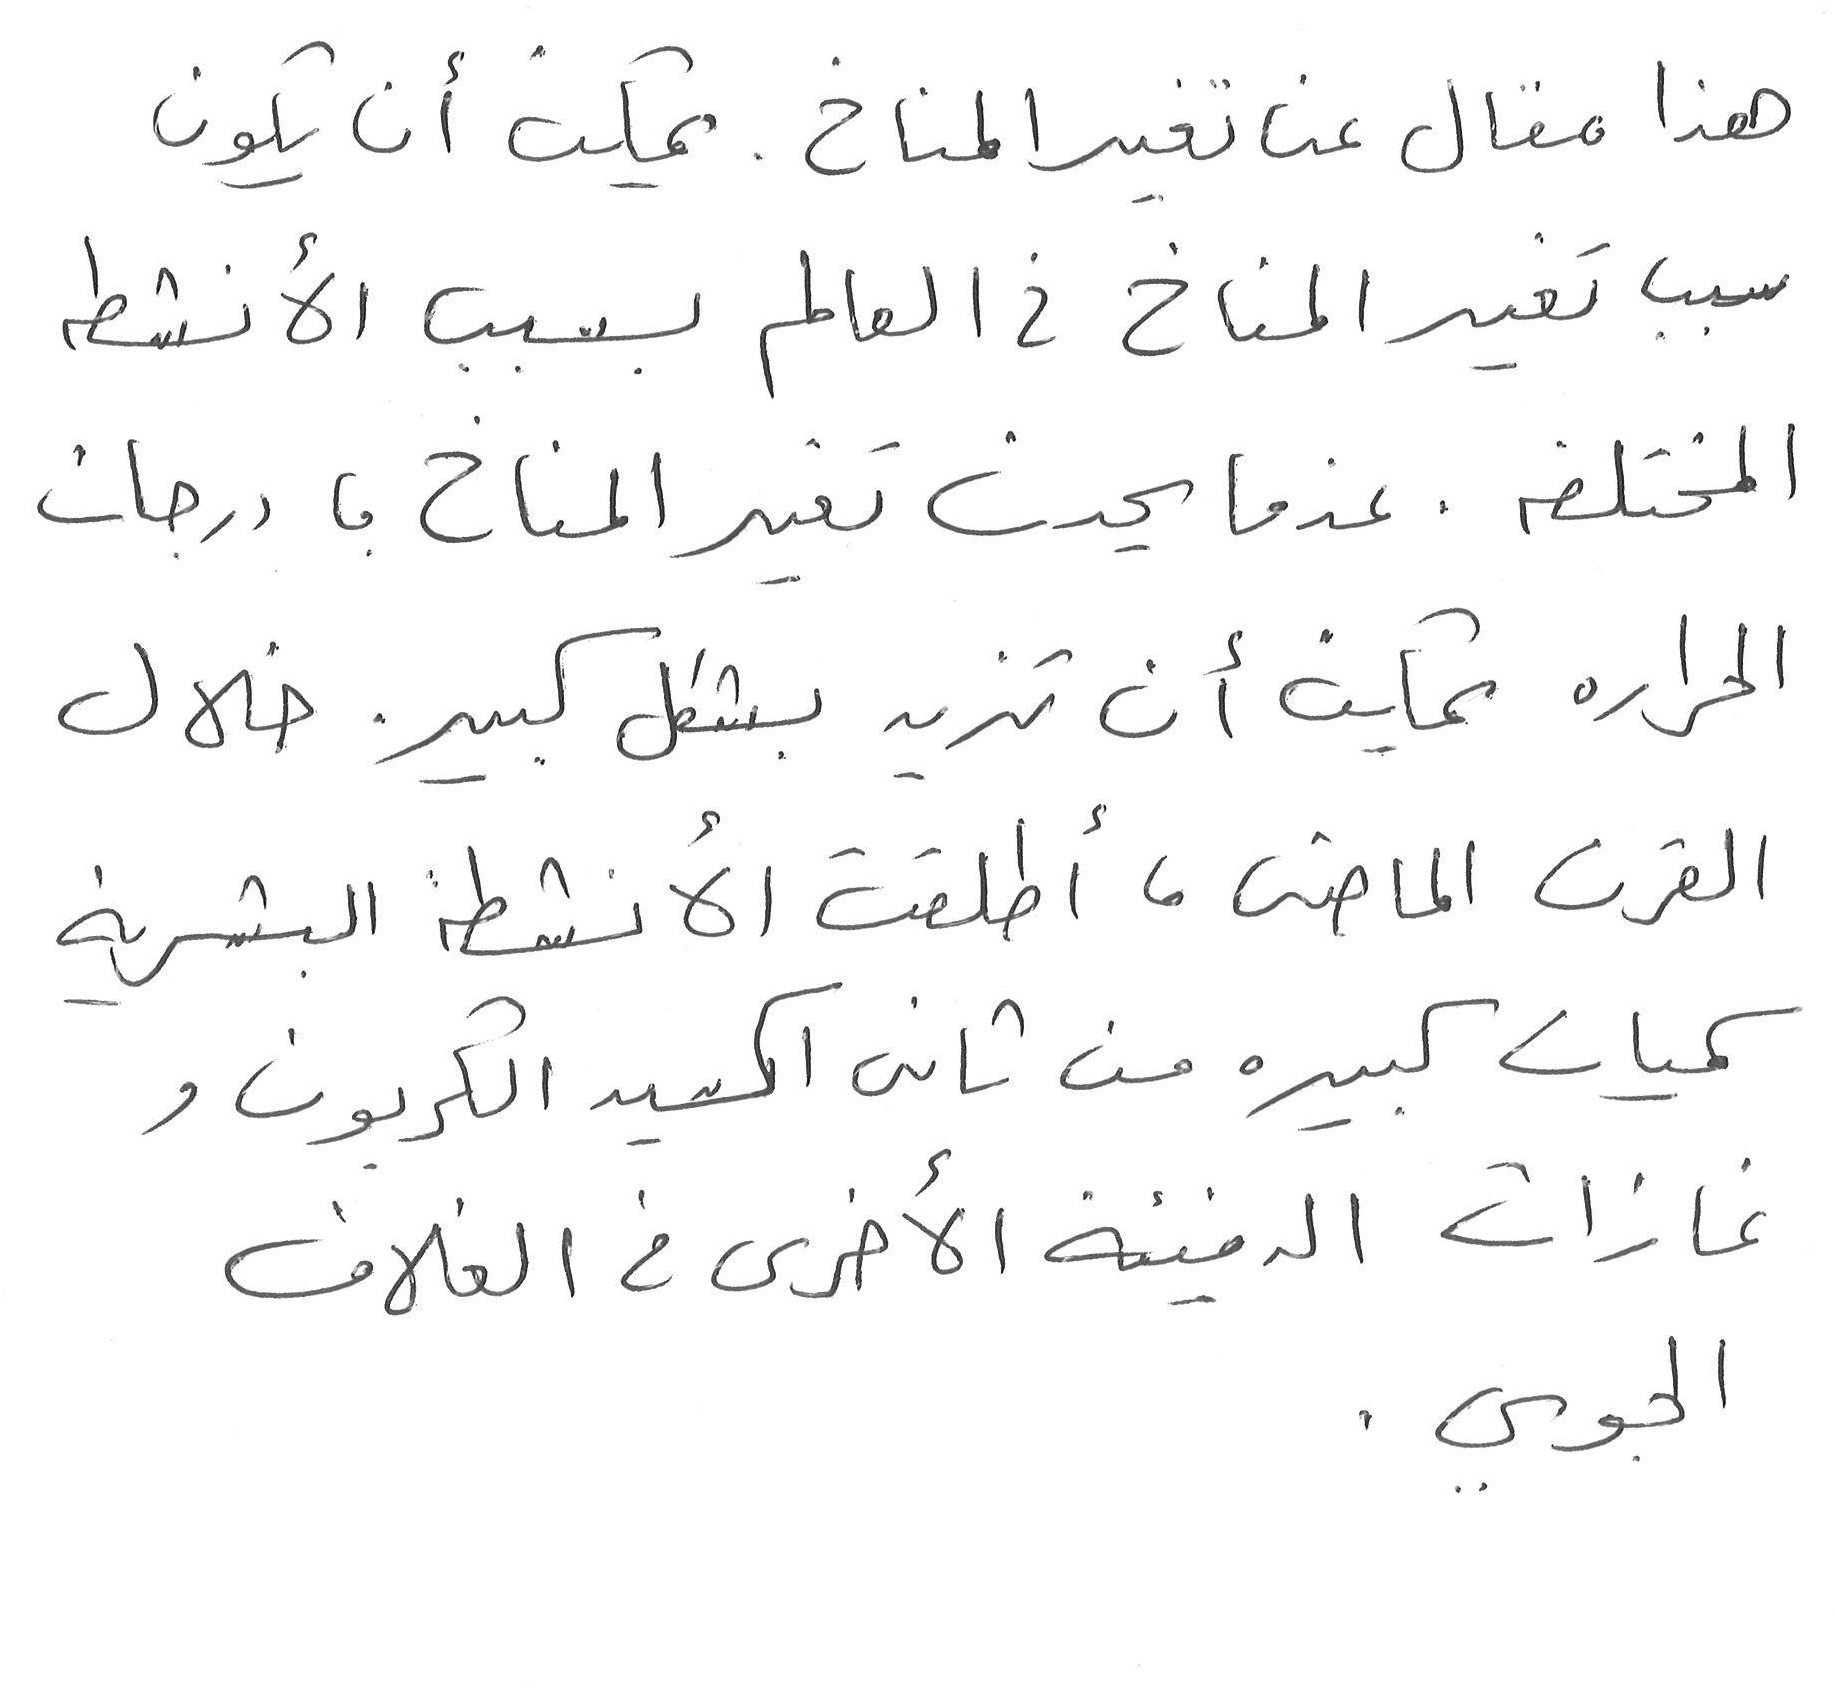 هذا مقال عن تغير المناخ. يمكن أن يكون
سبب تغير المناخ في العالم بسبب الأنشطه
المختلفه. عندما يحدث تغير المناخ، درجات
الحراره يمكن أن تزيد بشكل كبير. خلال
القرن الماضى، أطلقت الأنشطة البشرية
كميات كبيره من ثانى اكسيد الكربون و
غازات الدفيئة الأخرى في الغلاف
الجوي.